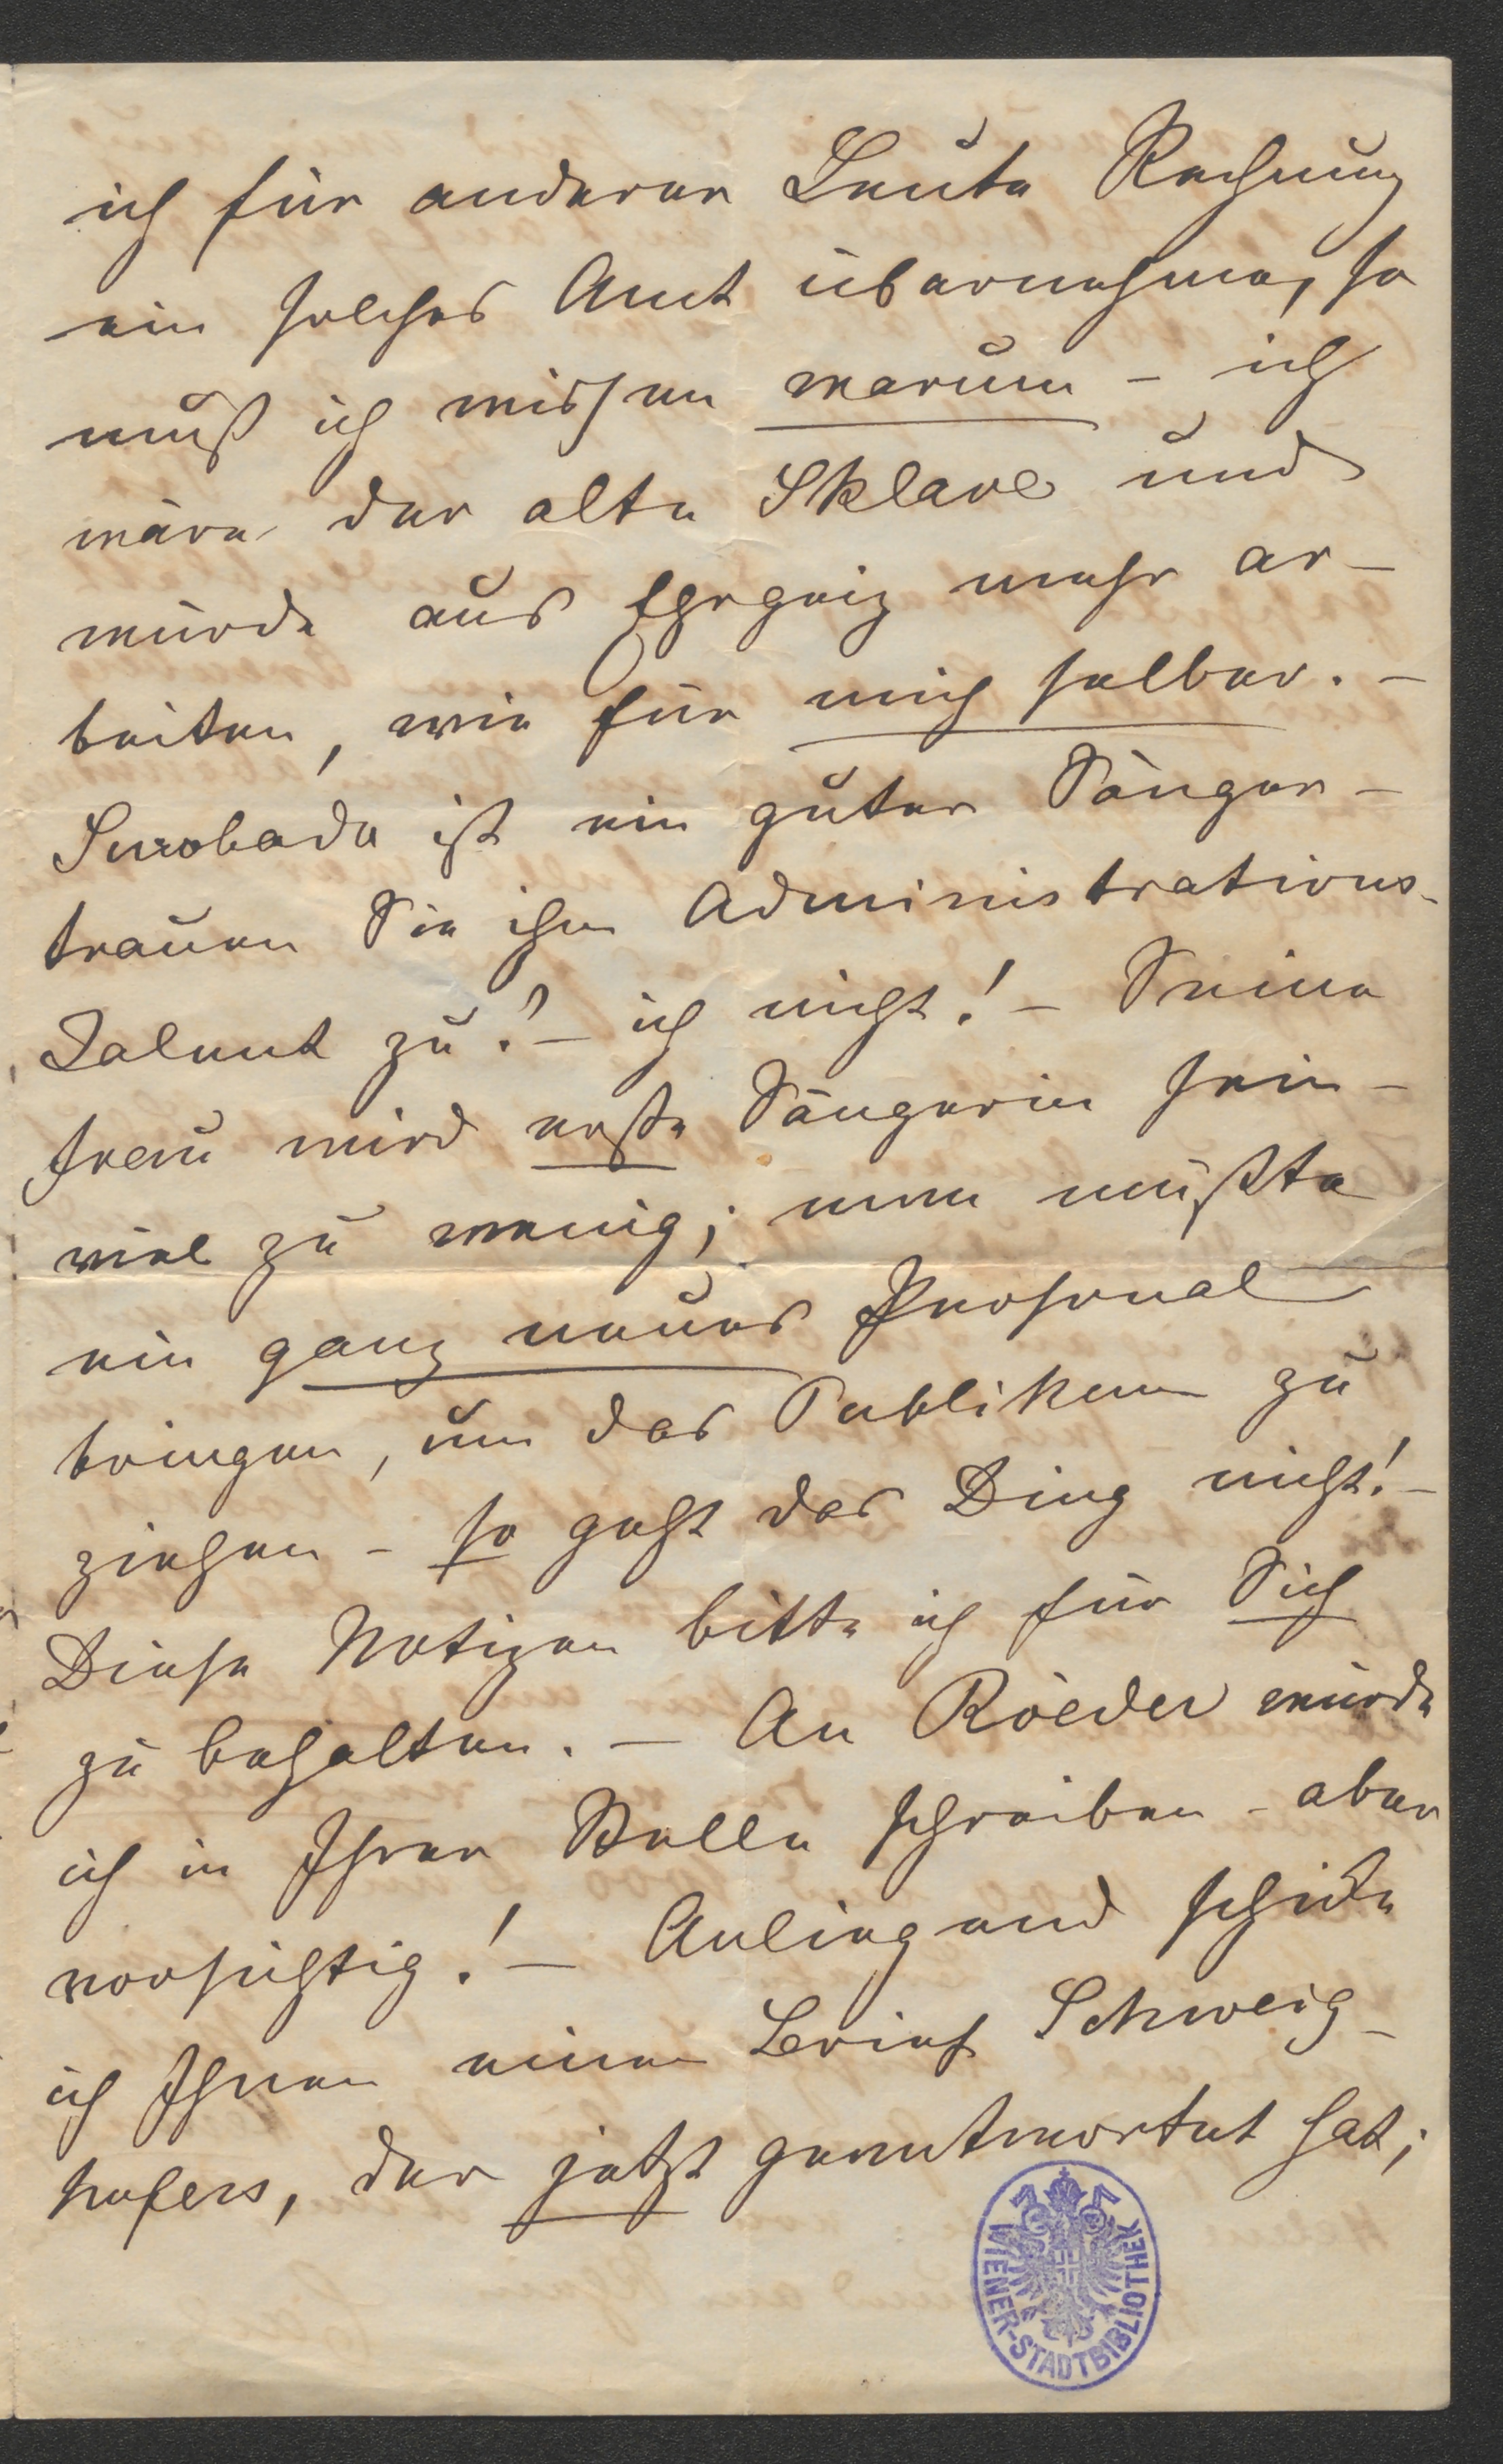 ich für anderer Leute Rechnung
ein solches Amt übernehme, so
muß ich wissen warum – ich
wäre der alte Sklave und
würde aus Ehrgeiz mehr ar–
beiten, wie für mich selber. –
Swoboda ist ein guter Sänger –
trauen Sie ihm Administrations-
Talent zu? – ich nicht! – Seine
Frau wird erste Sängerin sein –
viel zu wenig; man müßte
ein ganz neues Personal
bringen, um das Publikum zu
ziehen – so geht das Ding nicht! –
Diese Notizen bitte ich für Sich
zu behalten. – An Röeder würde
ich in Ihrer Stelle schreiben – aber
vorsichtig! – Anliegend schicke
ich Ihnen einen Brief Schweig–
hofers, der jetzt geantwortet hat;
WIENER-STADTBIBLIOTHEK